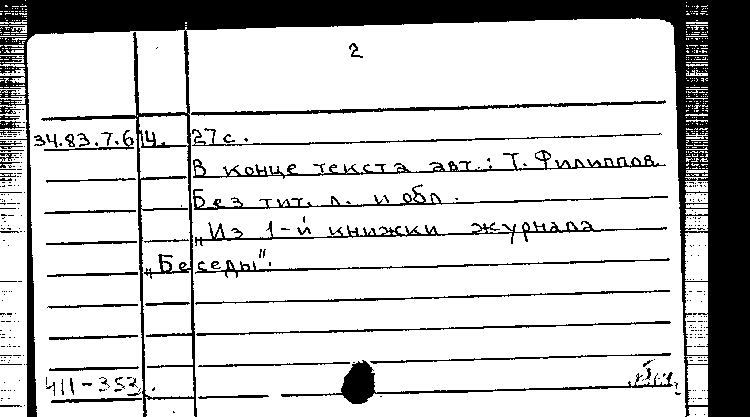 2
34.83.7.614. 27 с.
В конце текста авт.: Т. Филиппов
Без тит. л. и обл.
„Из 1-й книжки журнала
„Беседы".
411-353.